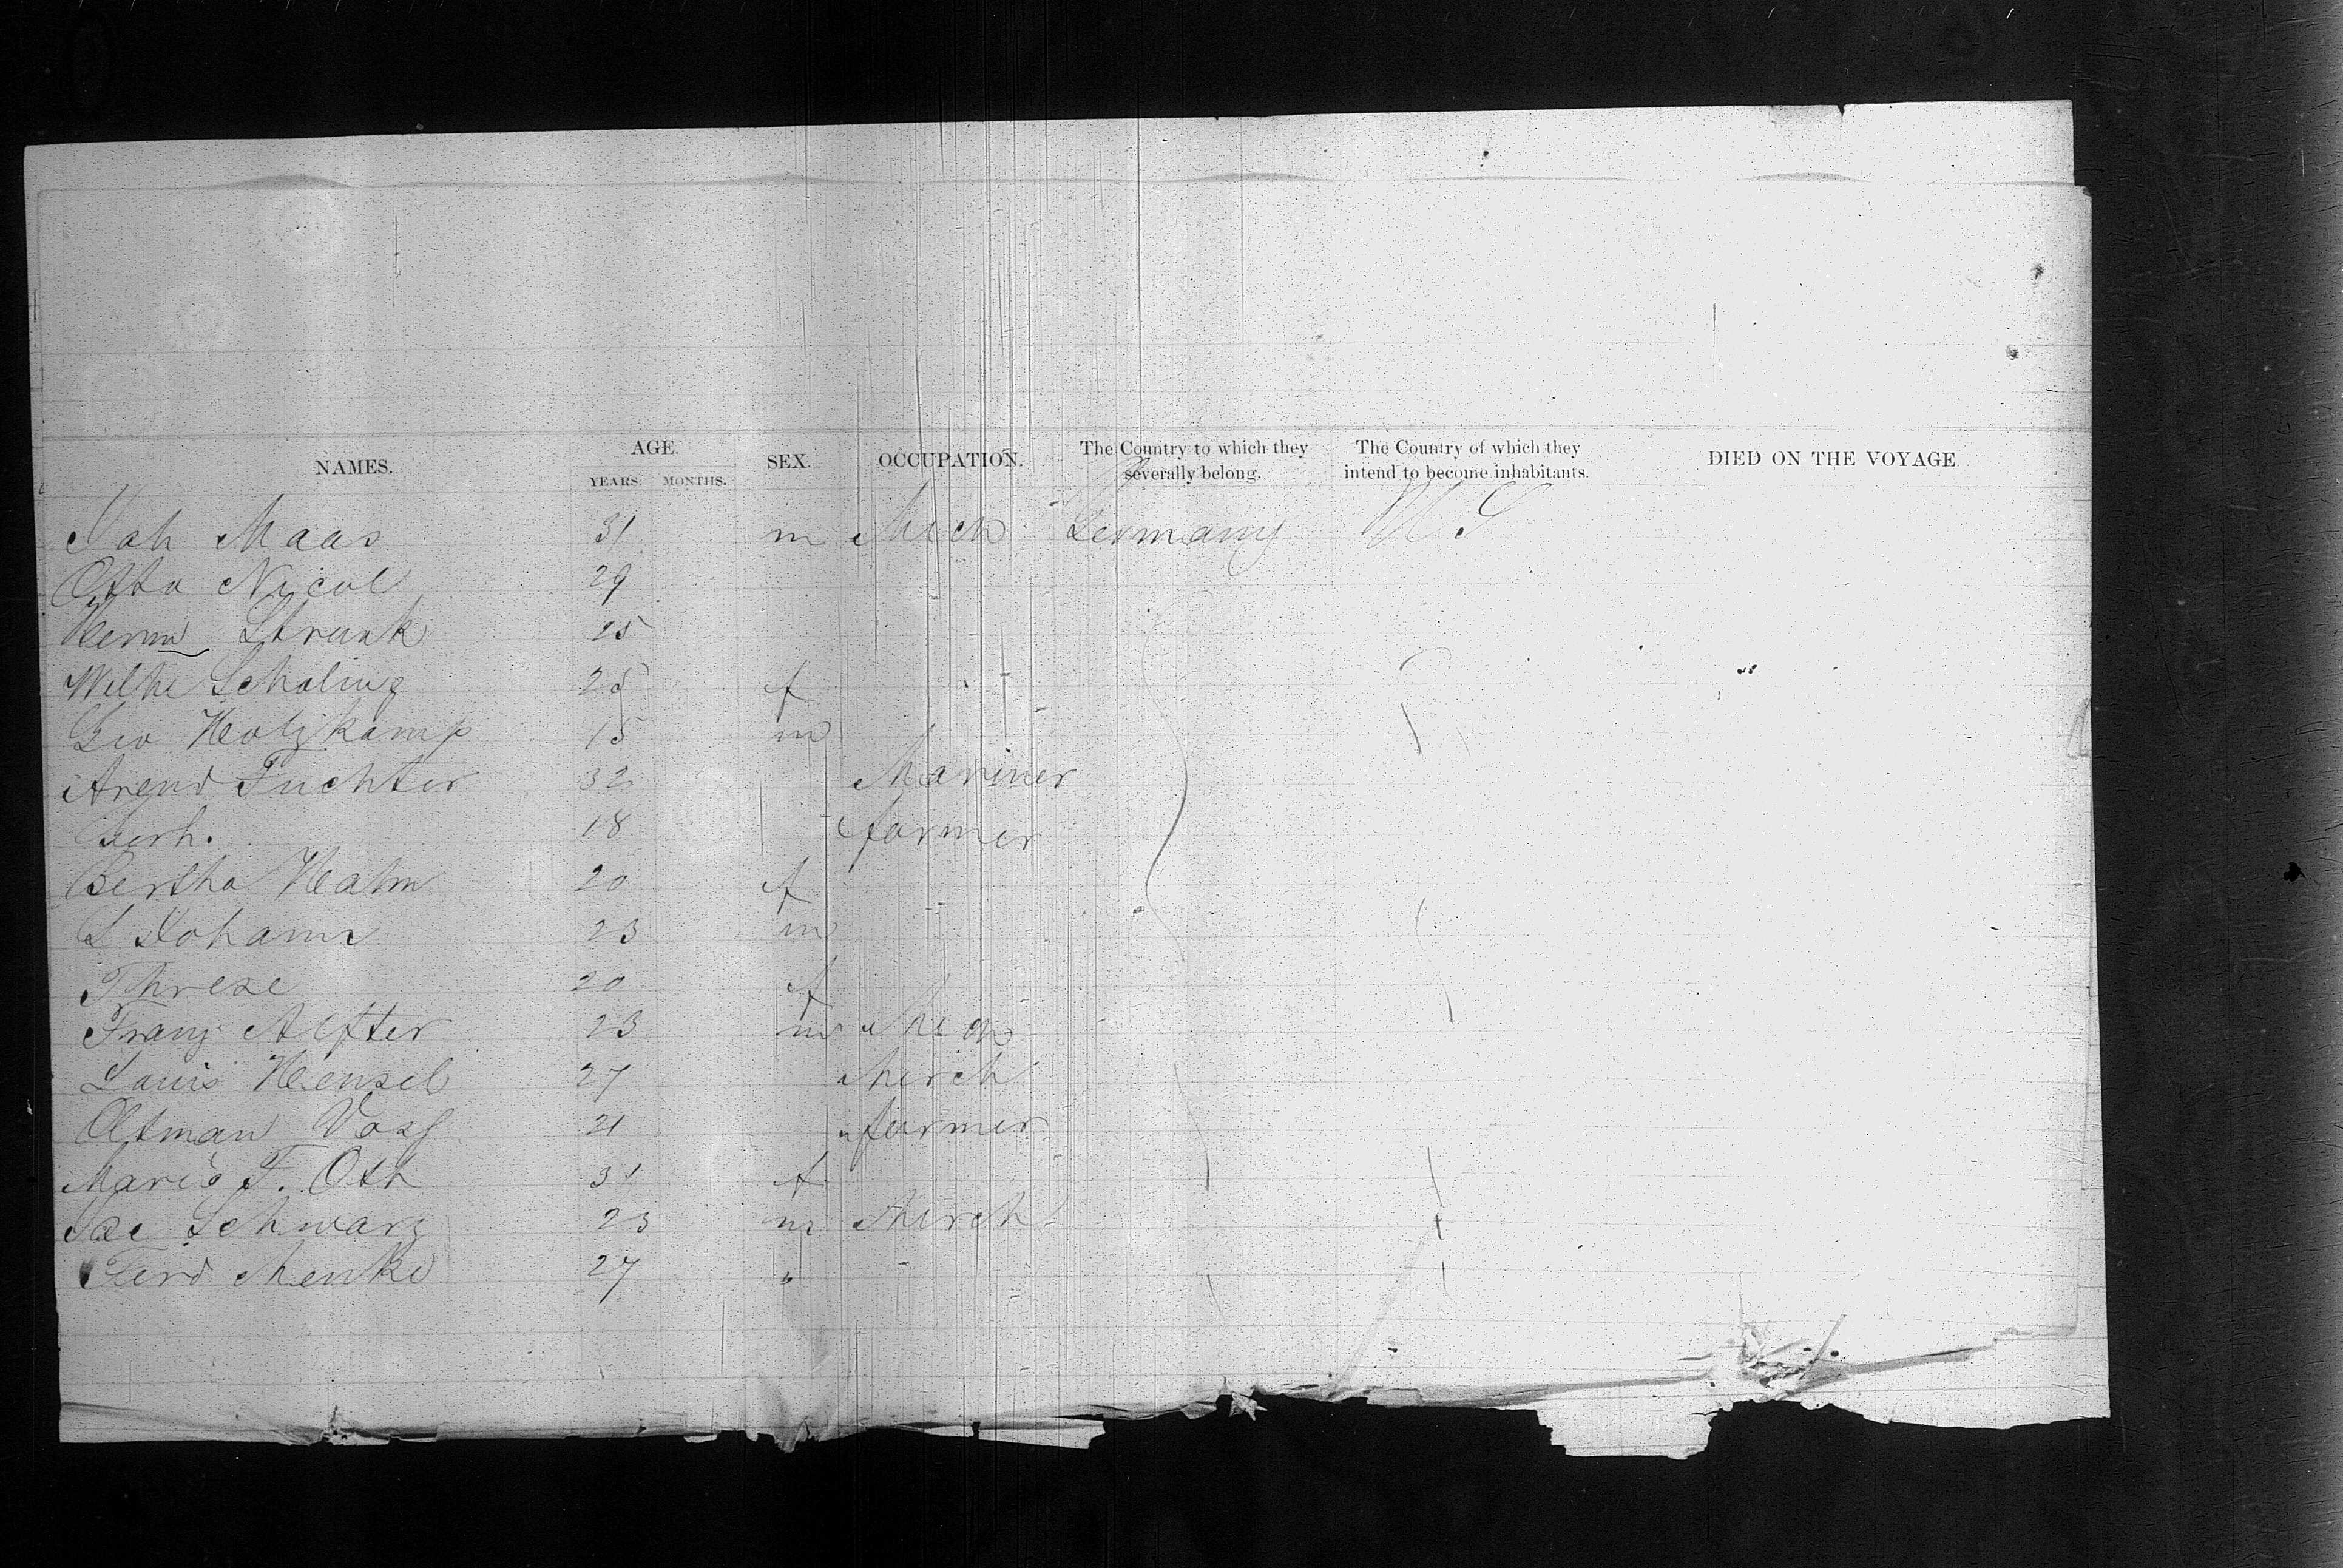 NAMES. AGE. YEARS. MONTHS. SEX. OCCUPATION. The Country to which they severally belong. The Country of which they intend to become inhabitants. DIED ON THE VOYAGE.
Joh Maas 31 m Mech Germany U S
Otto Nicol 29
Herm Strunk 25
Wilhe Schaling 25 f
Geo Holzkamp 15 m
Arend Fuchter 32 Mariner
Gerh. 18 farmer
Bertha Hahn 20 f
L Johann 23 m
Threse 20 f
Franz Alfter 23 m
Louis Hensel 27 Merch
Oltman Vosz 21 farmer
Marie F. Oth 31 f
Schwarz 23 m Merch
Ferd Menke 27 "